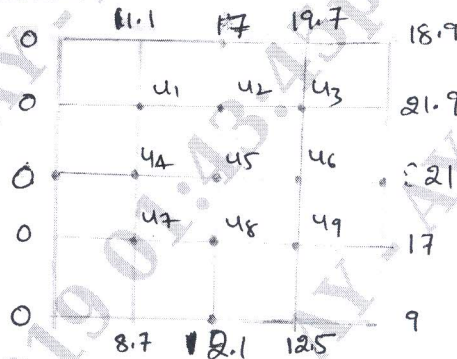 0 11.1 17 19.7 18.9
0 u1 u2 u3 21.9
0 u4 u5 u6 21
0 u7 u8 u9 17
0 8.7 12.1 12.5 9
19 01:43:45